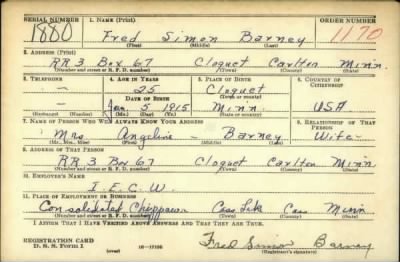 SERIAL NUMBER 1. NAME (Print) ORDER NUMBER
1880 Fred Simon Barney 1170
(First) (Middle) (Last)
2. ADDRESS (Print)
RR 3 Box 67 Cloquet Carlton Minn.
(Number and street or R. F. D. number) (Town) (County) (State)
3. TELEPHONE 4. AGE IN YEARS 5. PLACE OF BIRTH 6. COUNTRY OF CITIZENSHIP
– 25 Cloquet
DATE OF BIRTH (Town or county)
– Jan 5 1915 Minn. USA
(Exchange) (Number) (Mo.) (Day) (Yr.) (State or country)
7. NAME OF PERSON WHO WILL ALWAYS KNOW YOUR ADDRESS 8. RELATIONSHIP OF THAT PERSON
Mrs Angeline – Barney Wife
(Mr., Mrs., Miss) (First) (Middle) (Last)
9. ADDRESS OF THAT PERSON
RR 3 Box 67 Cloquet Carlton Minn
(Number and street or R. F. D. number) (Town) (County) (State)
10. EMPLOYER'S NAME
I. E. C. W.
11. PLACE OF EMPLOYMENT OR BUSINESS
Consolidated Chippewa Cass Lake Cass Minn
(Number and street or R. F. D. number) (Town) (County) (State)
I AFFIRM THAT I HAVE VERIFIED ABOVE ANSWERS AND THAT THEY ARE TRUE.
REGISTRATION CARD
D. S. S. FORM 1 (over) Fred Simon Barney
(Registrant's signature)